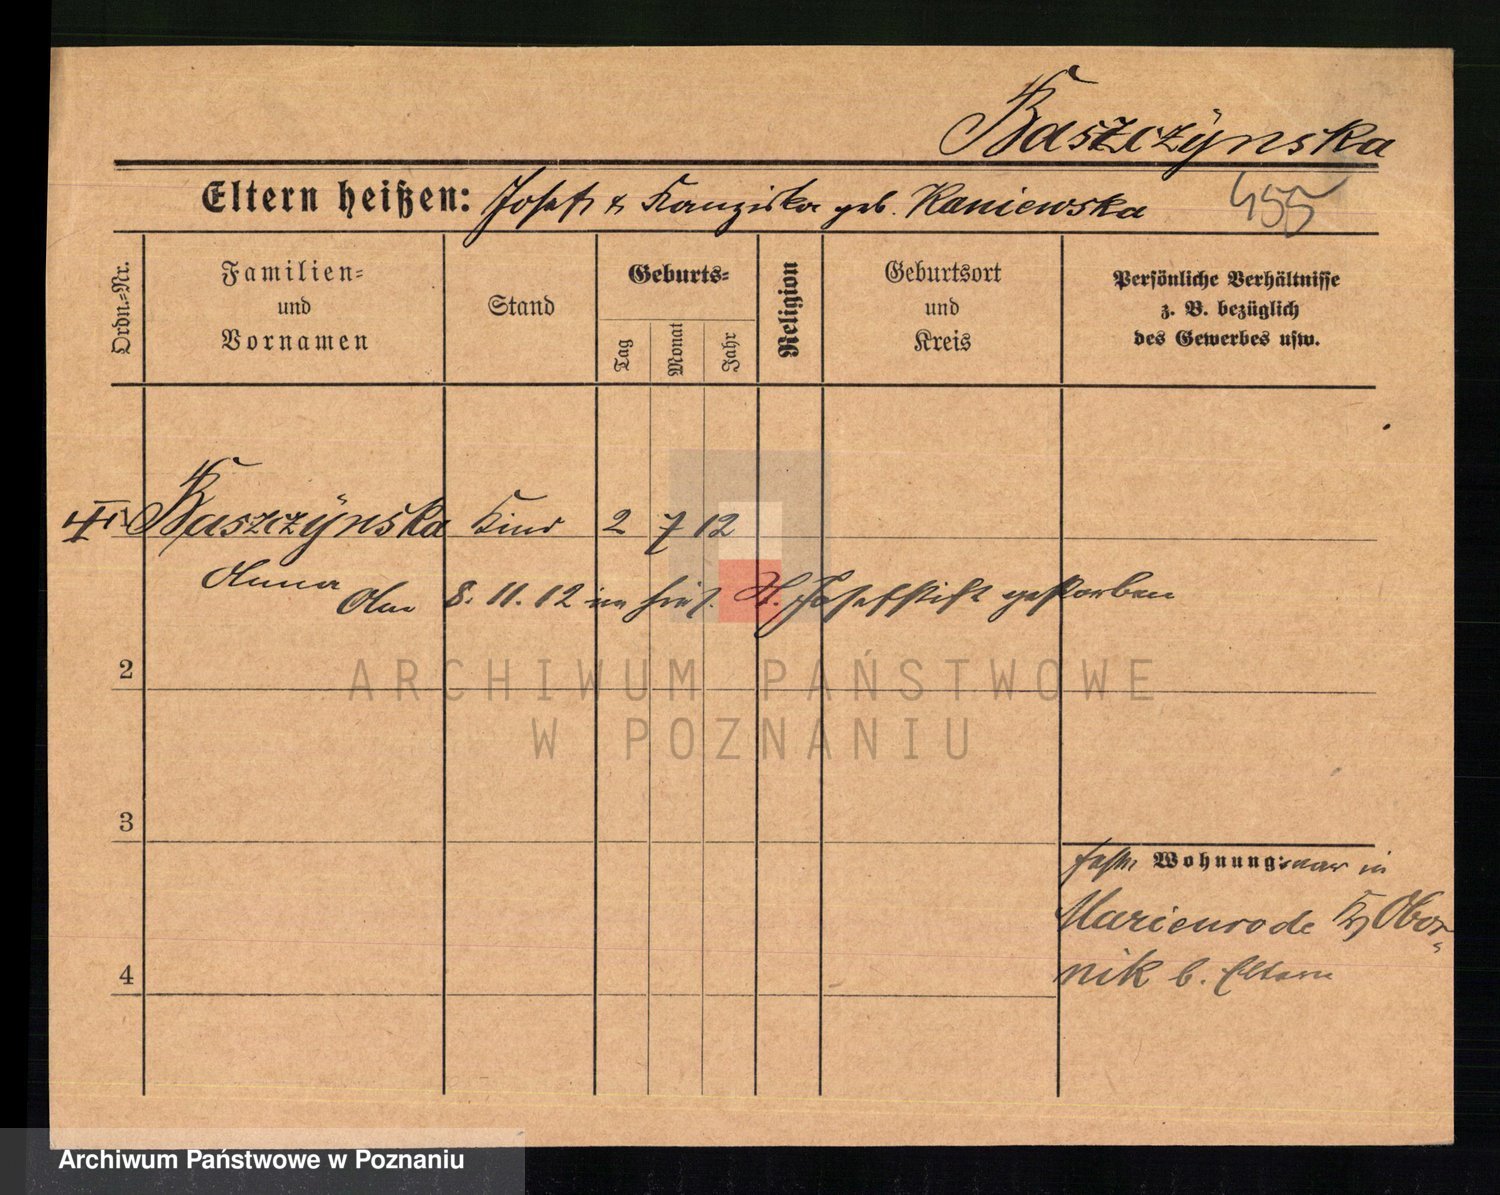 Baszczÿnska
Eltern heißen: Josef & Franziska geb. Kaniewska
455
Ordn.-Nr.
Familien- und Vornamen
Stand
Geburts-
Tag
Monat
Jahr
Religion
Geburtsort und Kreis
Persönliche Verhältnisse z. B. bezüglich des Gewerbes usw.
Baszczÿnska Kind 2 7 12
Anna
Am 8. 11. 12 im hies. St. Josefstift gestorben
2
3
4
Wohnung: war in
Marienrode Kr Obor-
nik b. Eltern
ARCHIWUM PAŃSTWOWE
W POZNANIU
Archiwum Państwowe w Poznaniu